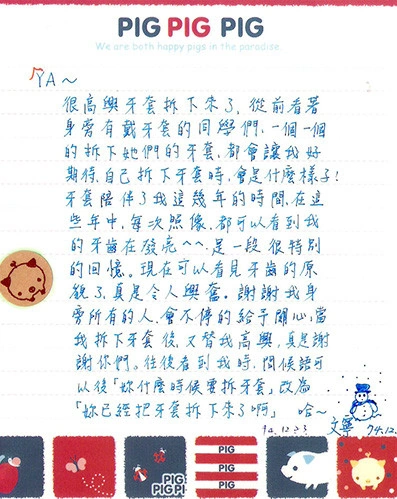 PIG PIG PIG
We are both happy pigs in the paradise.
YA～
很高興牙套拆下來了，從前看著
身旁有戴牙套的同學們，一個一個
的拆下她們的牙套，都會讓我好
期待，自己拆下牙套時，會是什麼樣子！
牙套陪伴了我這幾年的時間，在這
些年中，每次照像，都可以看到我
的牙齒在發亮^^，是一段很特別
的回憶。現在可以看見牙齒的原
貌了，真是令人興奮。謝謝我身
旁所有的人，會不停的給予關心，當
我拆下牙套後，又替我高興，真是謝
謝你們。往後看到我時，問候語可
以從「妳什麼時候要拆牙套」改為
「妳已經把牙套拆下來了啊」 哈～
94.12.23 文寧 94.12.
PIG
PIG
PIG
PIG
PIG PI